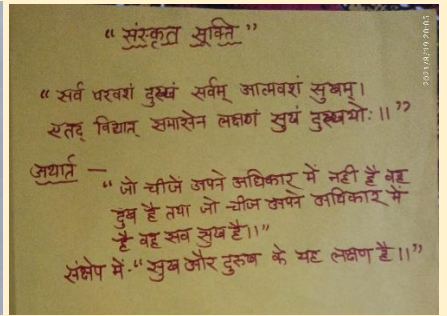 “ संस्कृत सूक्ति ”
“ सर्व परवशं दुःखं सर्वम् आत्मवशं सुखम्।
एतद् विद्यात् समासेन लक्षणं सुखं दुःखयोः।। ”
अथार्त –
“ जो चीजें अपने अधिकार में नही है वह
दुख है तथा जो चीज अपने अधिकार में
है वह सब सुख है।।”
संक्षेप में-“ सुख और दुःख के यह लक्षण है।।”
2021/8/19 20:05